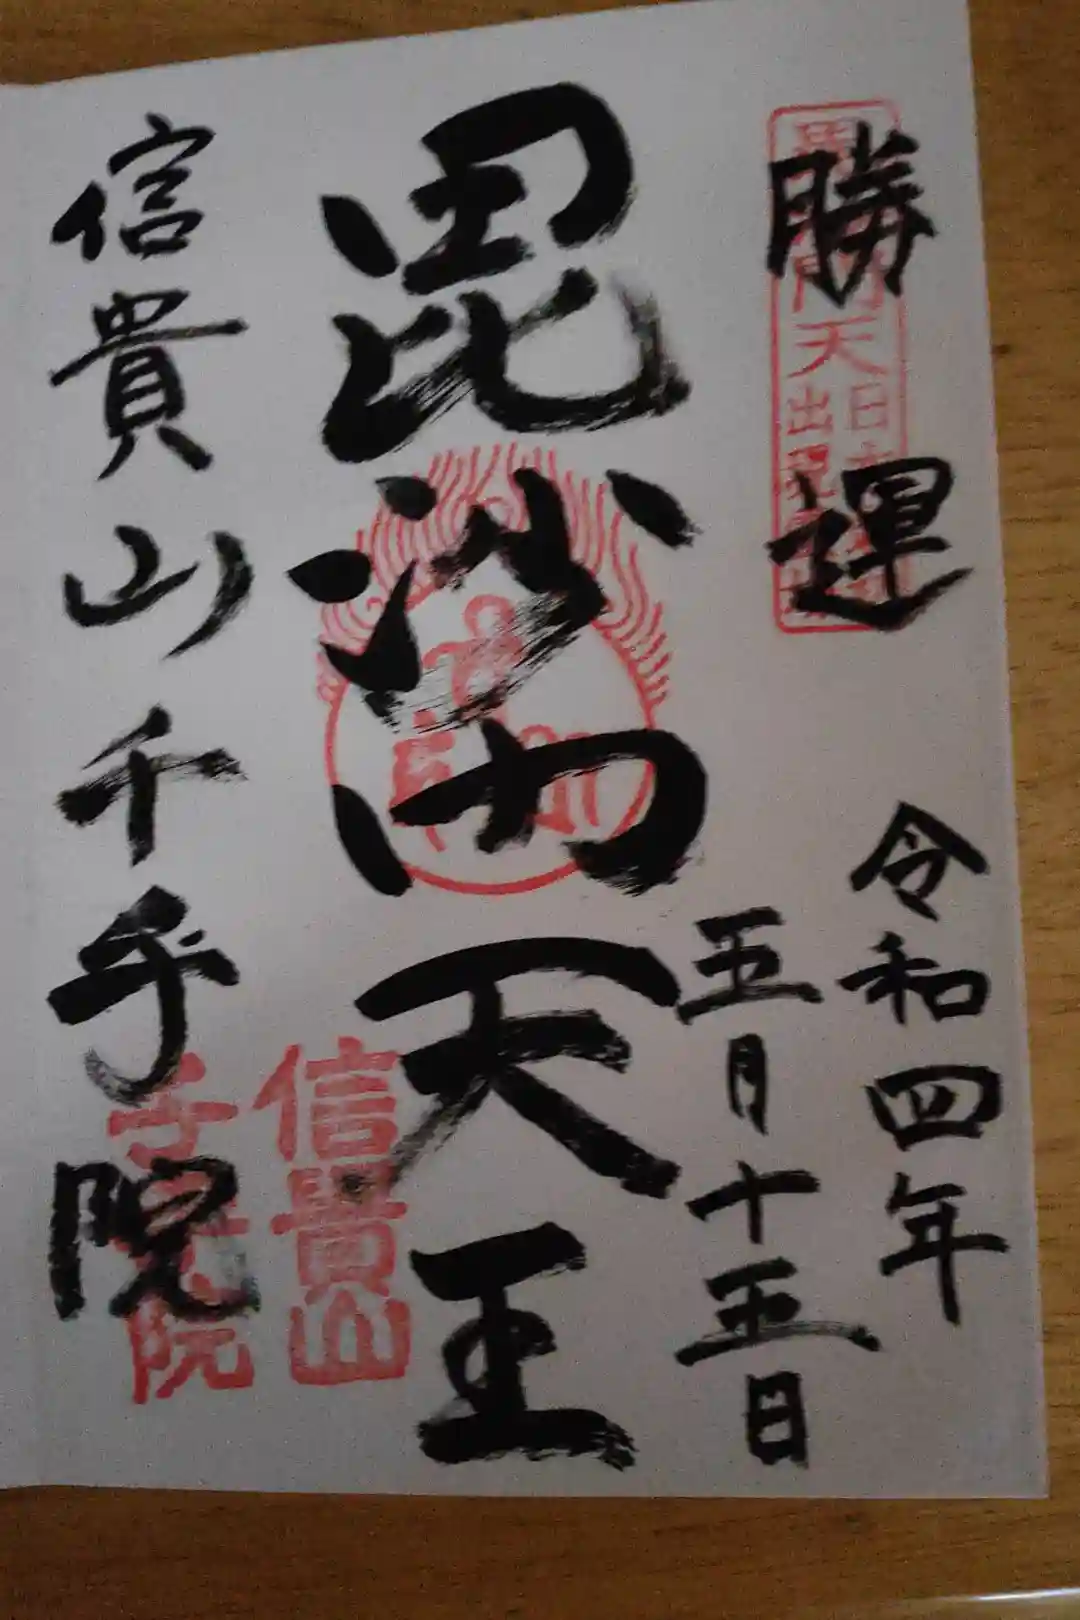 勝運
令和四年
五月十五日
毘沙門天王
信貴山千手院
毘沙門天
信貴山
千手院